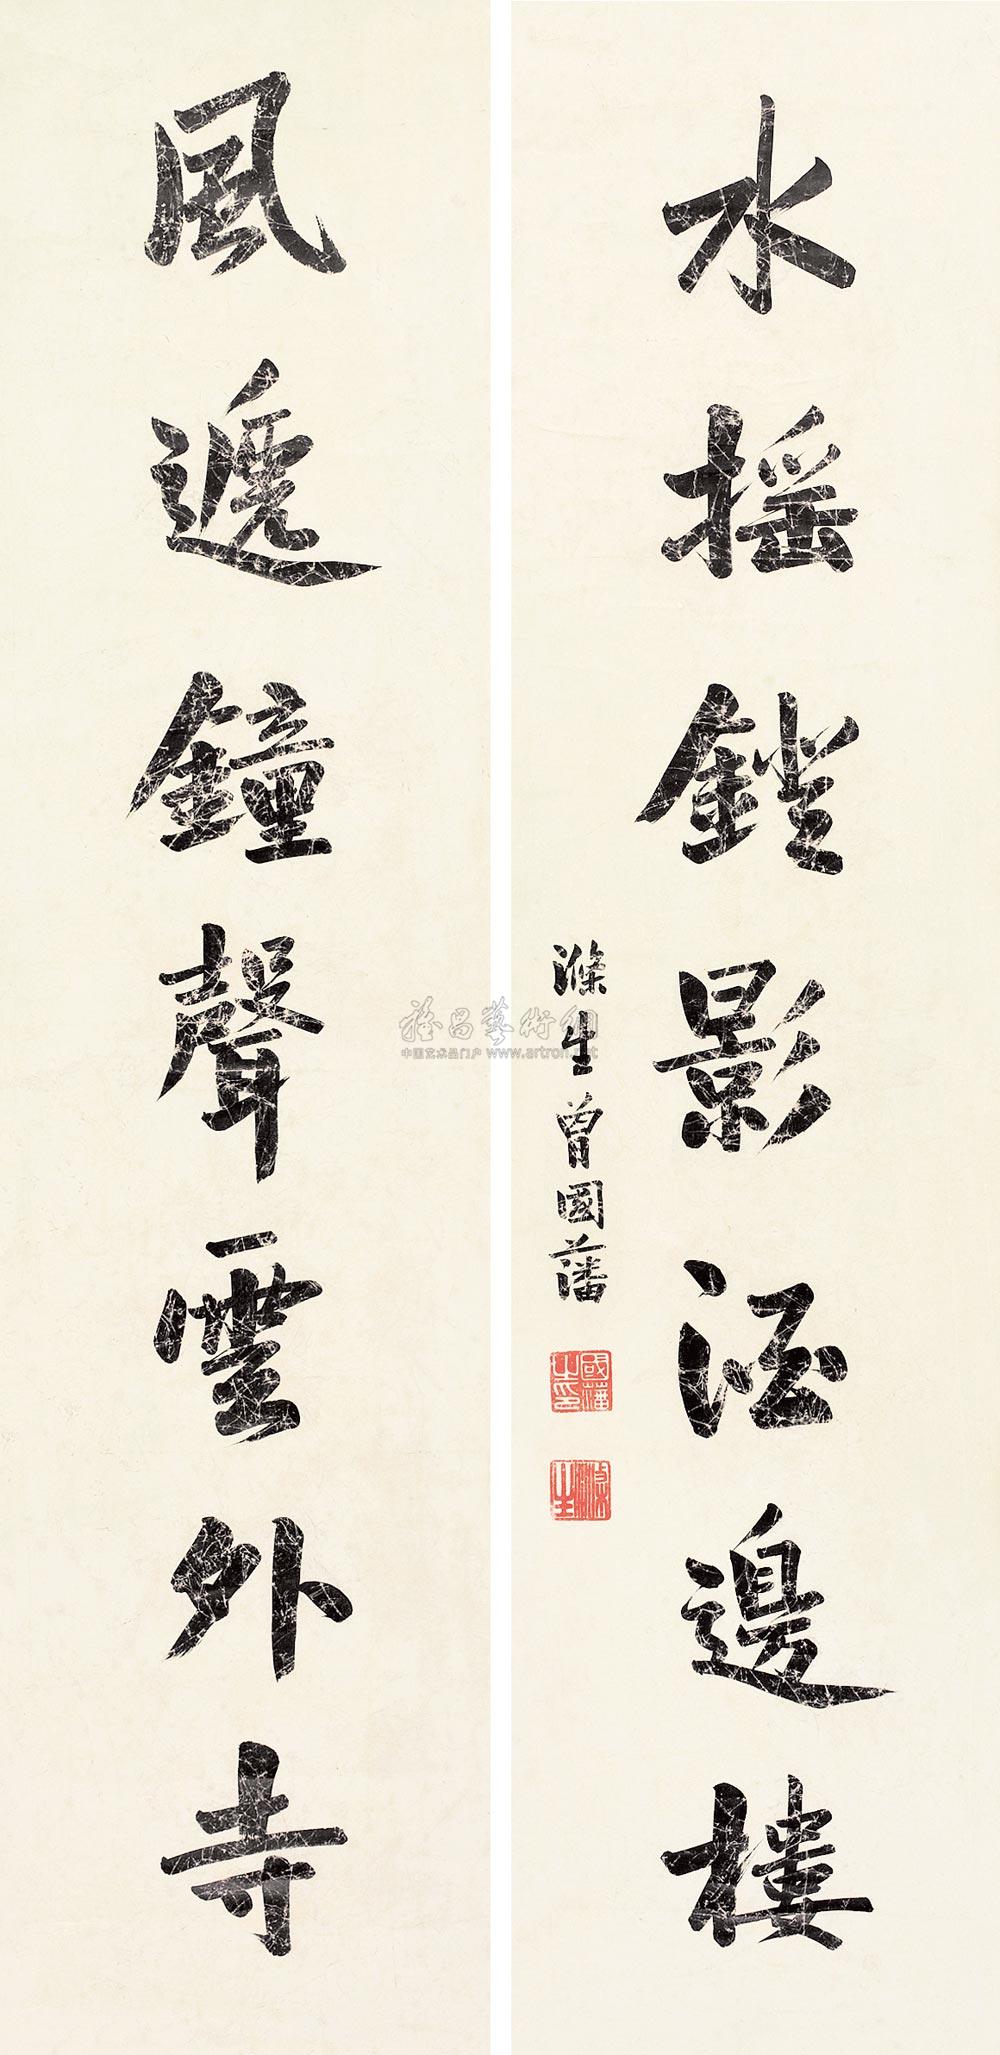 風遞鐘聲雲外寺
水搖鐙影酒邊樓
滌生曾國藩
國藩之印
滌生
雅昌藝術網
中国艺术品门户 www.artron.net